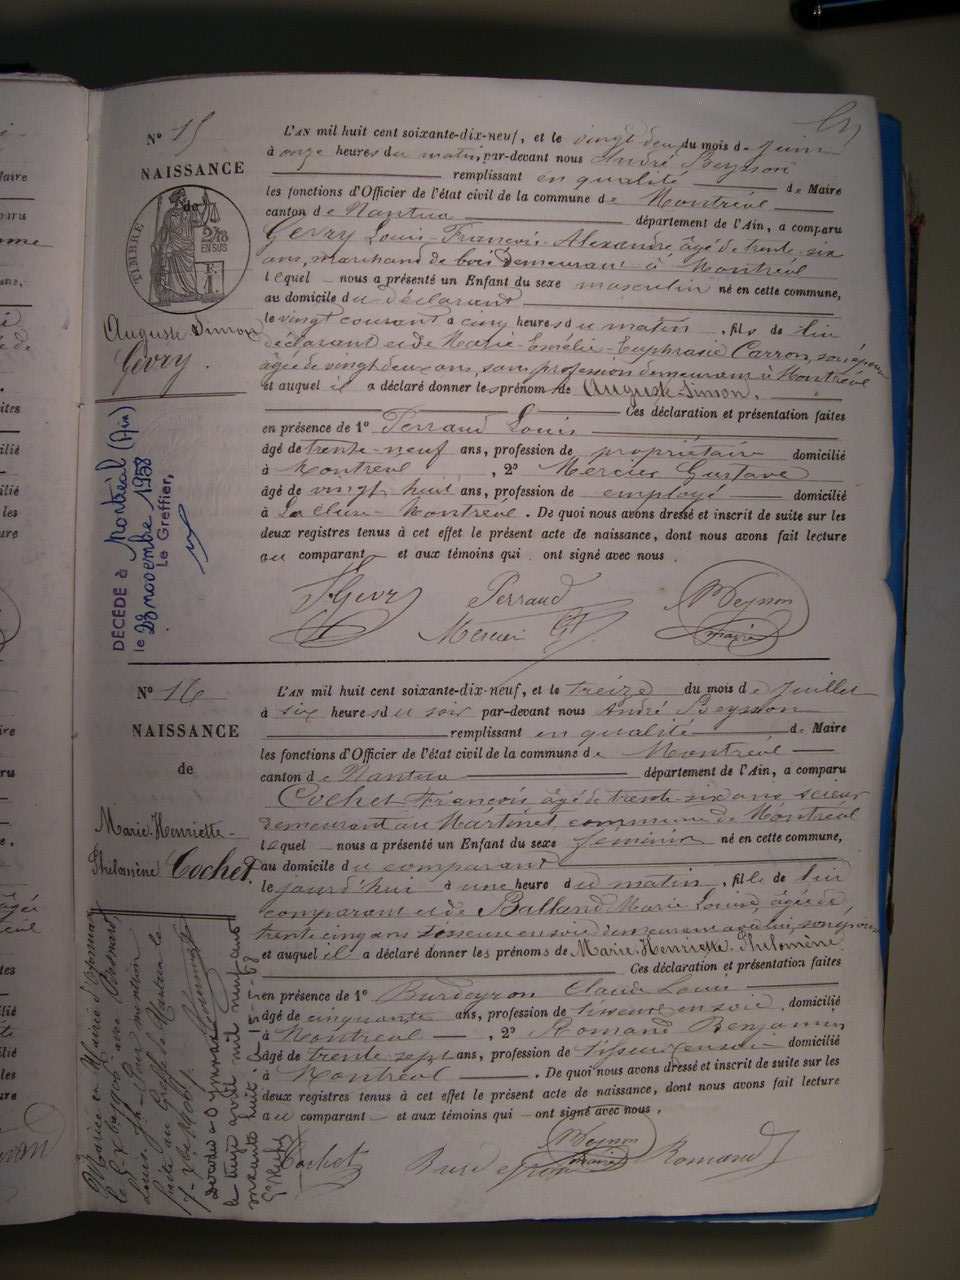 N° 15
NAISSANCE
de
TIMBRE
2/10
EN SUS
Auguste Simon
Gévry.
DÉCÉDÉ à Montréal (Ain)
le 28 novembre 1958
Le Greffier,
L'AN mil huit cent soixante-dix-neuf, et le vingt deux du mois de Juin
à onze heures du matin, par-devant nous André Beysson
remplissant en qualité de Maire
les fonctions d'Officier de l'état civil de la commune de Montréal
canton de Nantua département de l'Ain, a comparu
Gévry Louis-François-Alexandre, âgé de trente-six
ans, marchand de bois demeurant à Montréal
lequel nous a présenté un Enfant du sexe masculin né en cette commune,
au domicile du déclarant
le vingt courant à cinq heures du matin, fils de lui
déclarant et de Marie-Emélie-Euphrasie Carron, son épouse
âgée de vingt deux ans, sans profession demeurant à Montréal
et auquel il a déclaré donner les prénom de Auguste-Simon.
Ces déclaration et présentation faites
en présence de 1° Perraud Louis
âgé de trente-neuf ans, profession de propriétaire domicilié
à Montréal, 2° Mercier Gustave
âgé de vingt huit ans, profession de employé domicilié
à La Cluse-Montréal. De quoi nous avons dressé et inscrit de suite sur les
deux registres tenus à cet effet le présent acte de naissance, dont nous avons fait lecture
au comparant et aux témoins qui ont signé avec nous.
Gévry Perraud Beysson
Mercier G maire
N° 16
NAISSANCE
de
Marie-Henriette-
Philomène Cochet
L'AN mil huit cent soixante-dix-neuf, et le treize du mois de Juillet
à six heures du soir par-devant nous André Beysson
remplissant en qualité de Maire
les fonctions d'Officier de l'état civil de la commune de Montréal
canton de Nantua département de l'Ain, a comparu
Cochet François âgé de trente-six ans, scieur
demeurant au Martinet, commune de Montréal
lequel nous a présenté un Enfant du sexe féminin né en cette commune,
au domicile du comparant
le jourd'hui à une heure du matin, fille de lui
comparant et de Balland Marie Louise, âgée de
trente cinq ans tisseuse en soie demeurant avec lui, son épouse
et auquel il a déclaré donner les prénoms de Marie-Henriette-Philomène
Ces déclaration et présentation faites
en présence de 1° Burdeyron Claude Louis
âgé de cinquante ans, profession de tisseur en soie domicilié
à Montréal, 2° Romand Benjamin
âgé de trente sept ans, profession de tisseur en soie domicilié
à Montréal. De quoi nous avons dressé et inscrit de suite sur les
deux registres tenus à cet effet le présent acte de naissance, dont nous avons fait lecture
au comparant et aux témoins qui ont signé avec nous.
Cochet Burdeyron Beysson maire Romand
Mariée en Mairie d'Oyonnax
le avec
Louis mention
faite au Greffe de Nantua le
décédée à Oyonnax
le treize avril mil neuf cent
soixante huit